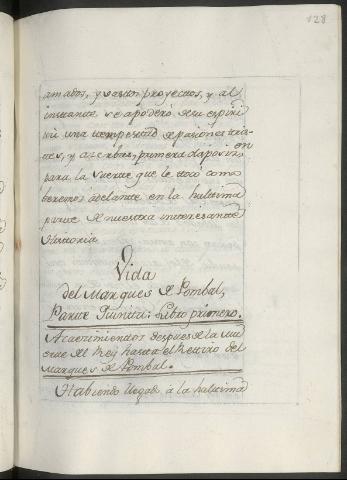 128
amados, y vastos proyectos, y al
instante se apoderó de su espiri
tu una tempestad de pasiones tris
tes, y acerbas, primera disposi
on
para la suerte que le toco como
beremos adelante en la hultima
parte de nuestra interesante
Historia.
Vida
del Marques de Pombal,
Parte Quinta: Libro primero.
Acaecimientos despues de la mu
erte del Rey hasta el Retiro del
Marques de Pombal.
Habiendo llegado à la hultima